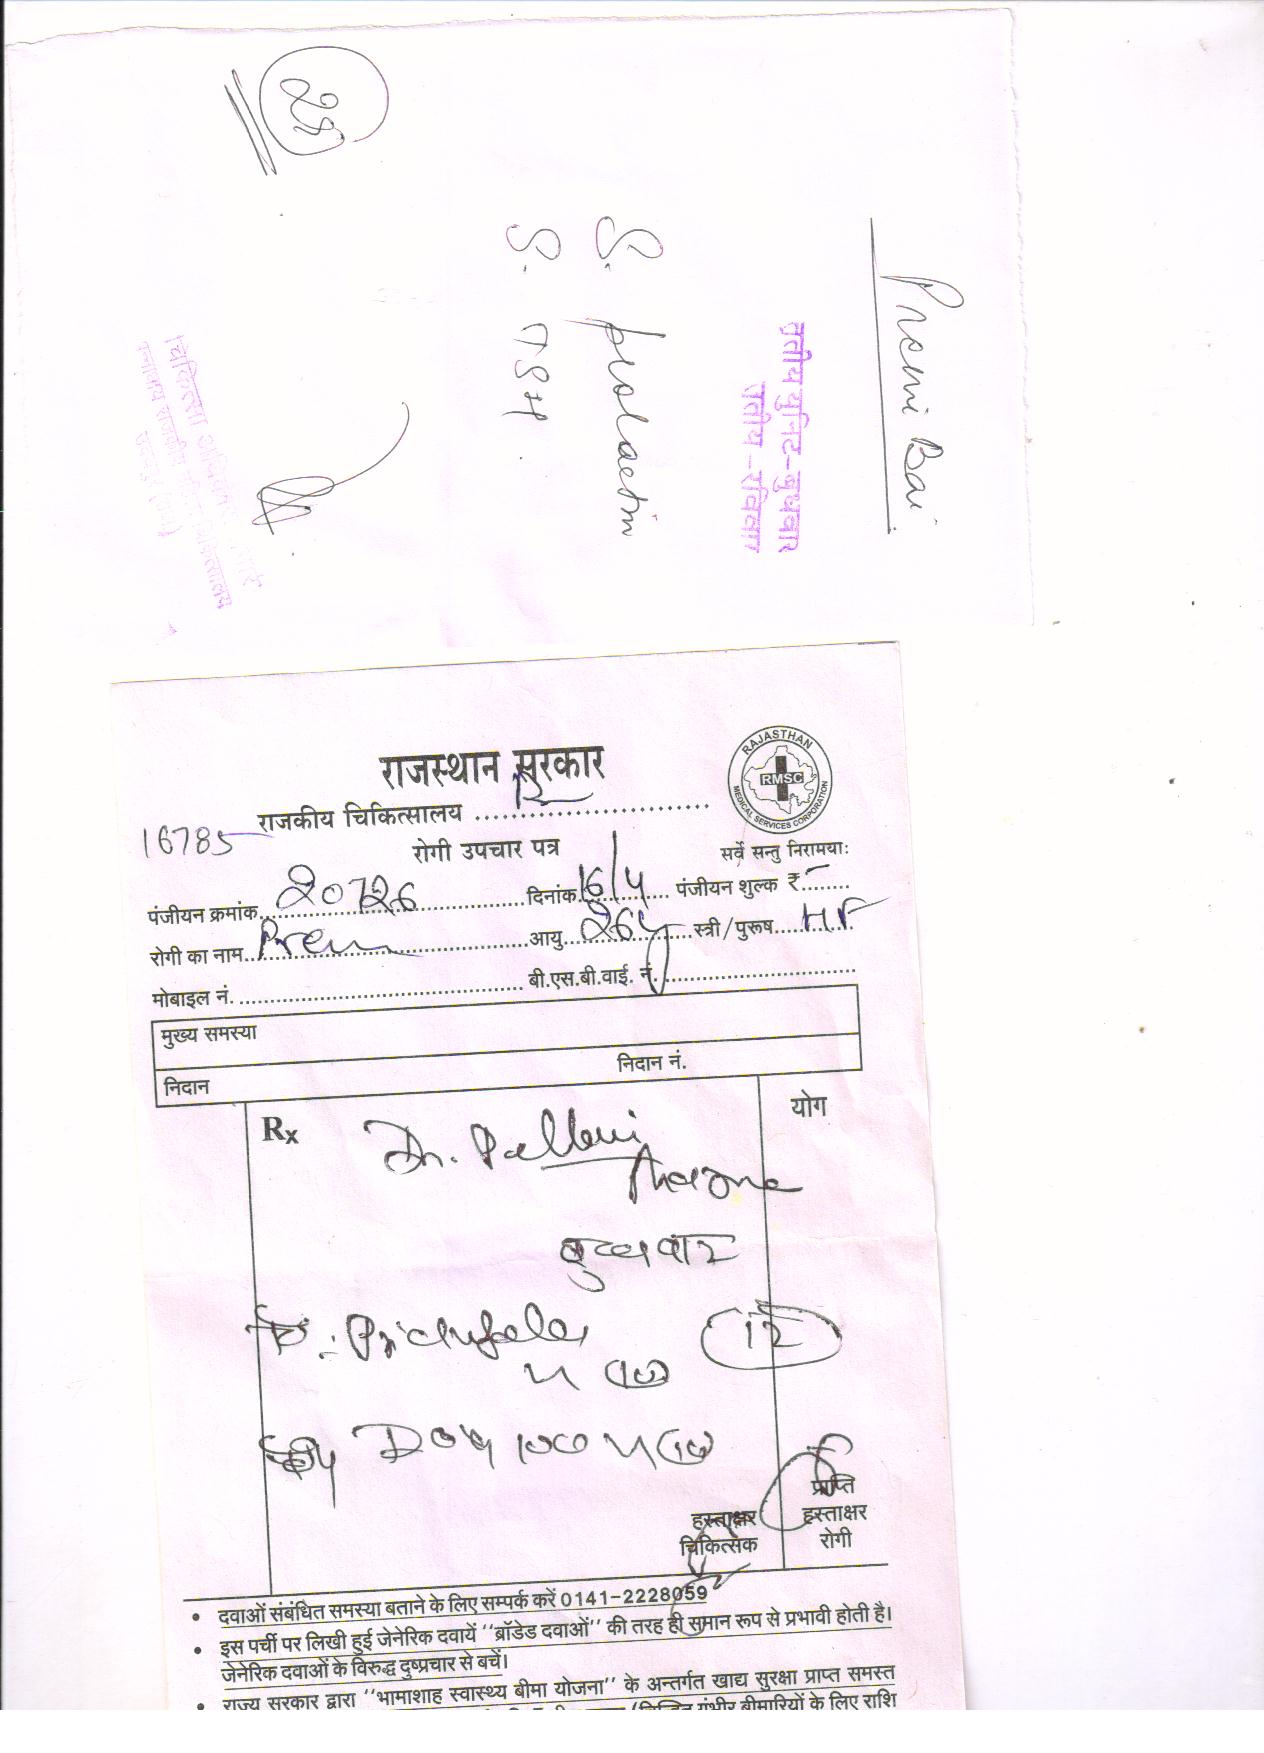 Premi Bai
तृतीय युनिट-बुधवार
तृतीय-रविवार
S. prolactin
S. TSH.
चिकित्सा अधिकारी
राजकीय चिकित्सालय
राजस्थान सरकार
RAJASTHAN
RMSC
MEDICAL SERVICES CORPORATION
राजकीय चिकित्सालय
16785
रोगी उपचार पत्र
सर्वे सन्तु निरामयाः
पंजीयन क्रमांक 20726 दिनांक 16/4 पंजीयन शुल्क ₹ -
रोगी का नाम Prem आयु 26y स्त्री/पुरूष HF
मोबाइल नं. बी.एस.बी.वाई. नं.
मुख्य समस्या
निदान नं.
निदान
Rx योग
Dr. Pallavi
बुधवार
12
Doxy 100
प्राप्ति
हस्ताक्षर हस्ताक्षर
चिकित्सक रोगी
• दवाओं संबंधित समस्या बताने के लिए सम्पर्क करें 0141-2228059
• इस पर्ची पर लिखी हुई जेनेरिक दवायें ''ब्रॉडेड दवाओं'' की तरह ही समान रूप से प्रभावी होती है।
जेनेरिक दवाओं के विरुद्ध दुष्प्रचार से बचें।
• राज्य सरकार द्वारा ''भामाशाह स्वास्थ्य बीमा योजना'' के अन्तर्गत खाद्य सुरक्षा प्राप्त समस्त
गंभीर बीमारियों के लिए राशि